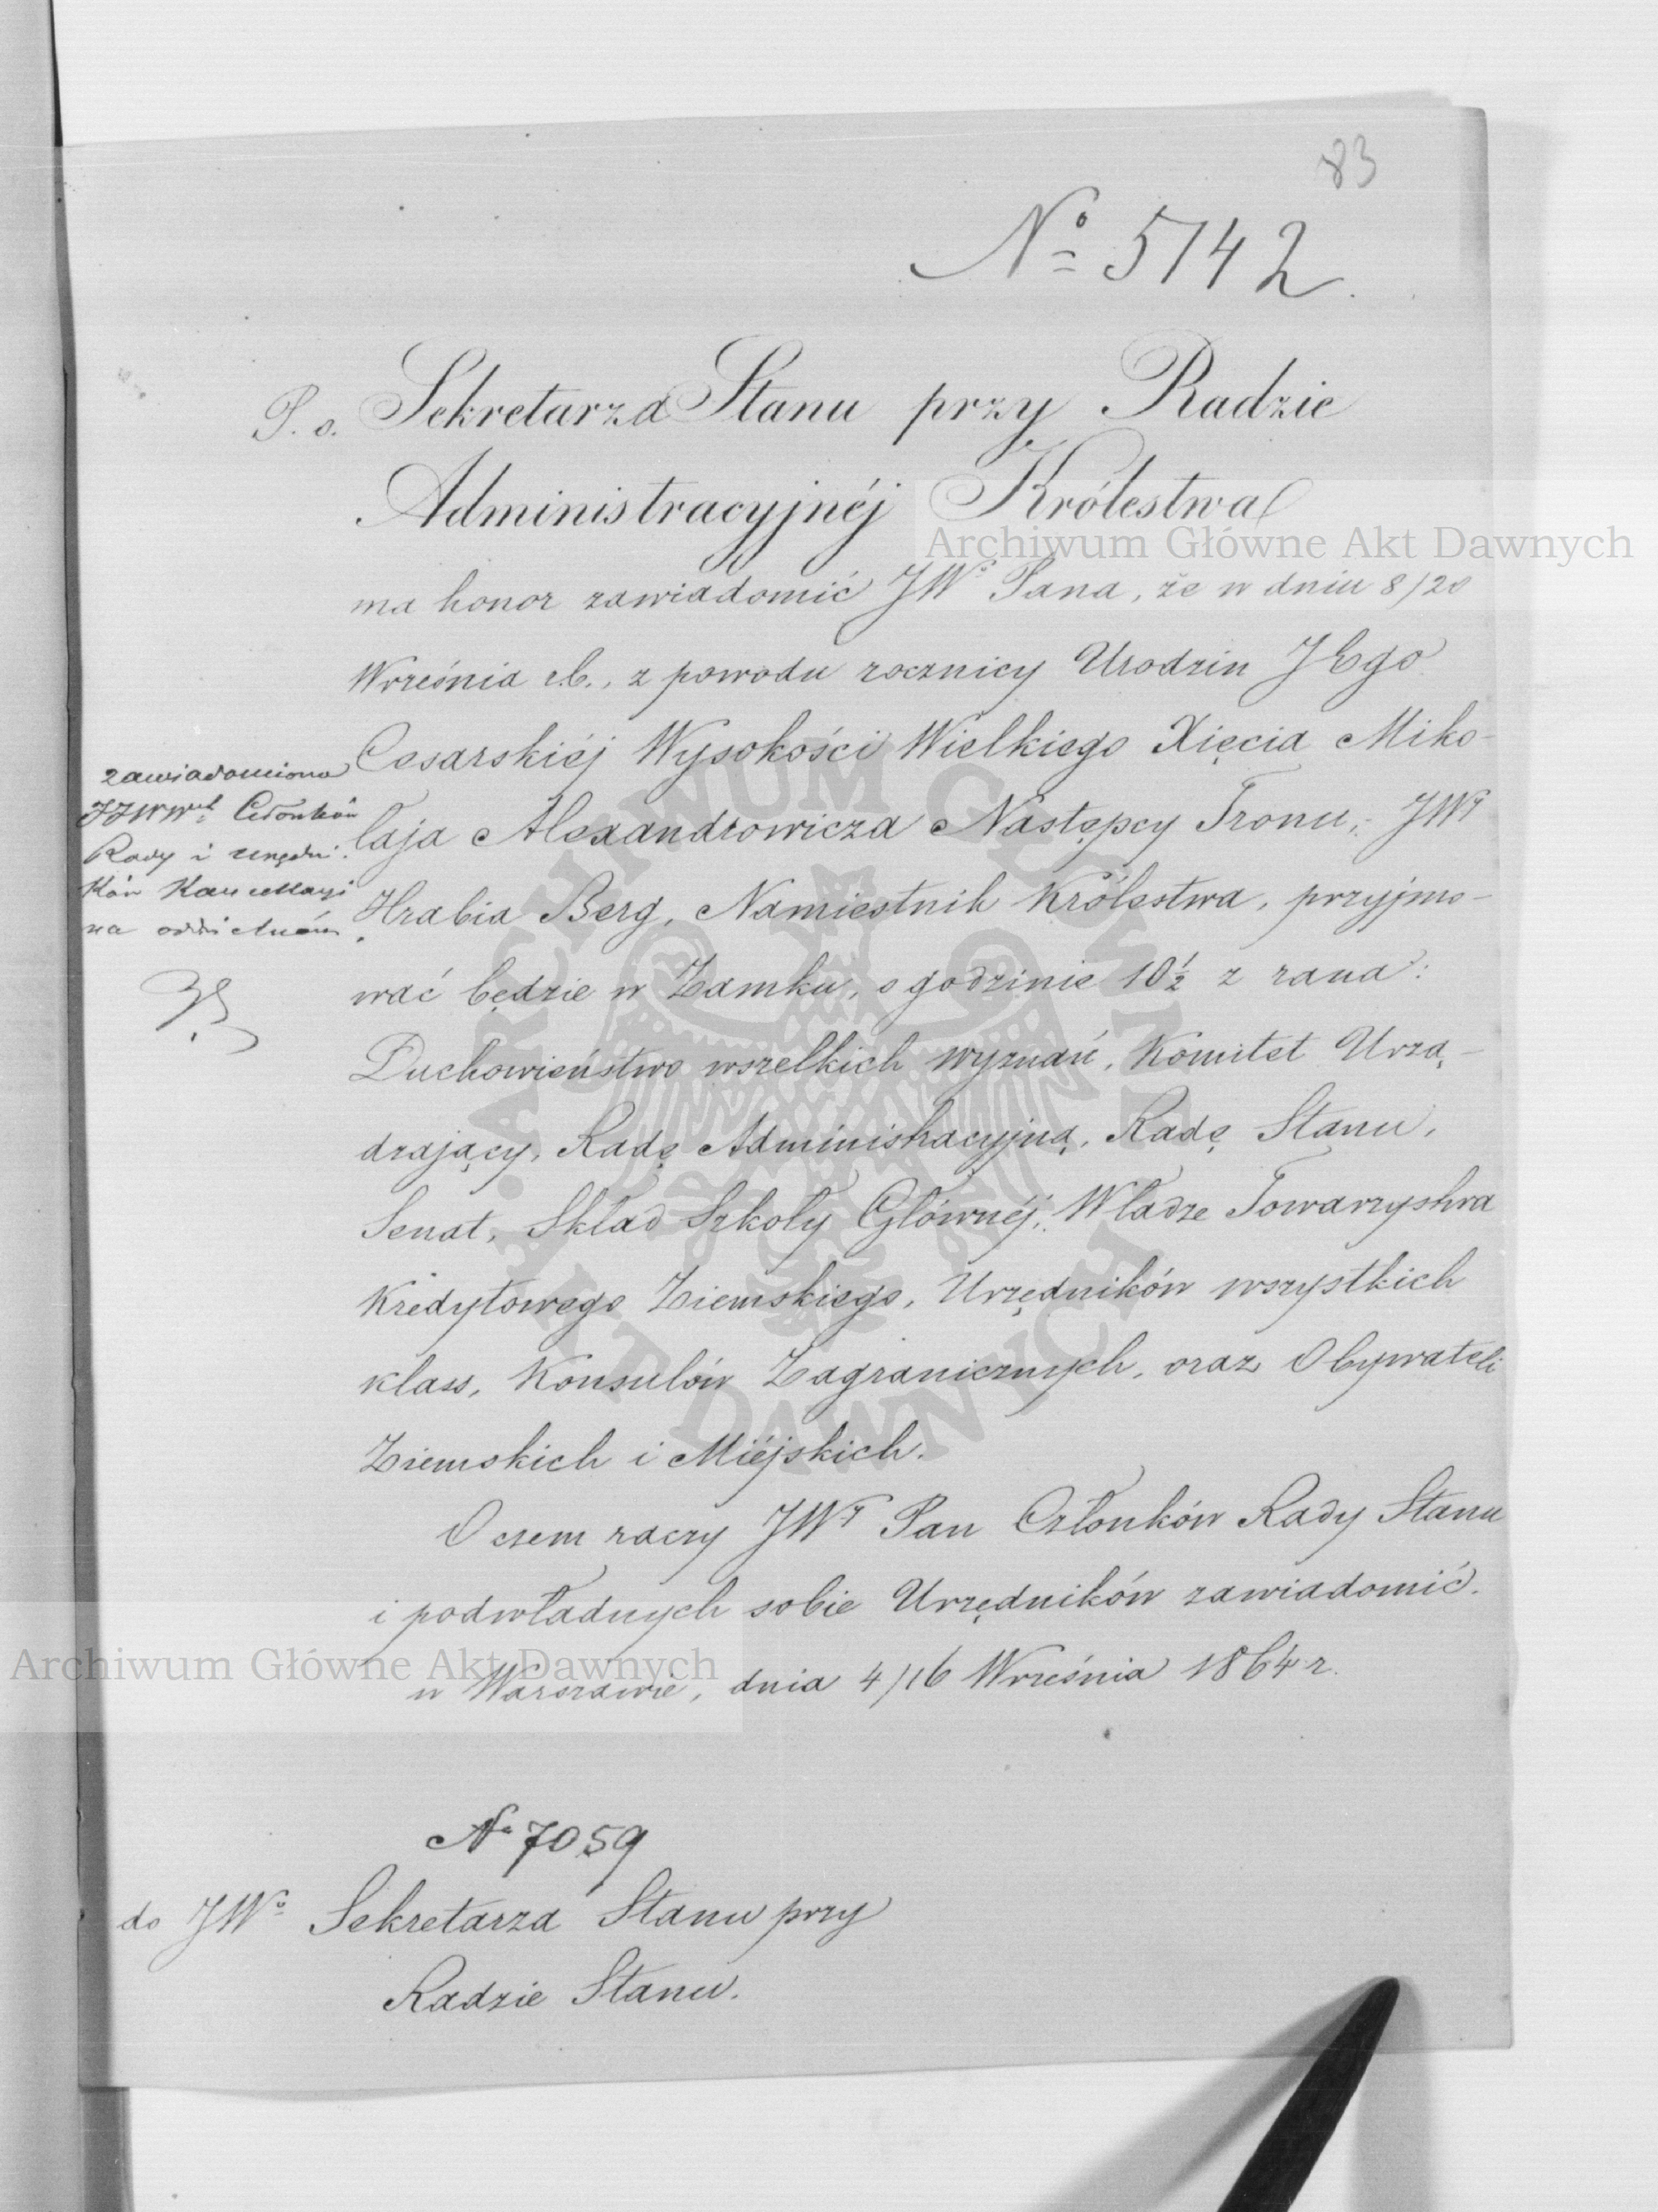 83
№ 5142.
P. o. Sekretarza Stanu przy Radzie
Administracyjnéj Królestwa
ma honor zawiadomić JWº Pana, że w dniu 8/20
Września r.b., z powodu rocznicy Urodzin JEgo
Cesarskiéj Wysokości Wielkiego Xięcia Miko-
łaja Alexandrowicza Następcy Tronu, JWy
Hrabia Berg, Namiestnik Królestwa, przyjmo-
wać będzie w Zamku, o godzinie 10½ z rana:
Duchowieństwo wszelkich wyznań, Komitet Urzą-
dzający, Radę Administracyjną, Radę Stanu,
Senat, Skład Szkoły Głównéj, Władze Towarzystwa
Kredytowego Ziemskiego, Urzędników wszystkich
klass, Konsulów Zagranicznych, oraz Obywateli
Ziemskich i Miéjskich.
O czem raczy JWy Pan Członków Rady Stanu
i podwładnych sobie Urzędników zawiadomić.
w Warszawie, dnia 4/16 Września 1864 r.
zawiadomiono
JJWWch Członków
Rady i urzędni-
ków Kancellaryi
na oddzielném
№ 7059
do JWº Sekretarza Stanu przy
Radzie Stanu.
Archiwum Główne Akt Dawnych
Archiwum Główne Akt Dawnych
ARCHIWUM GŁÓWNE AKT DAWNYCH